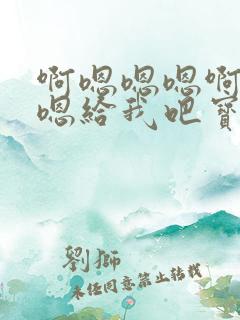 啊嗯嗯嗯啊
嗯给我吧宝
劉獅
未经同意禁止转载